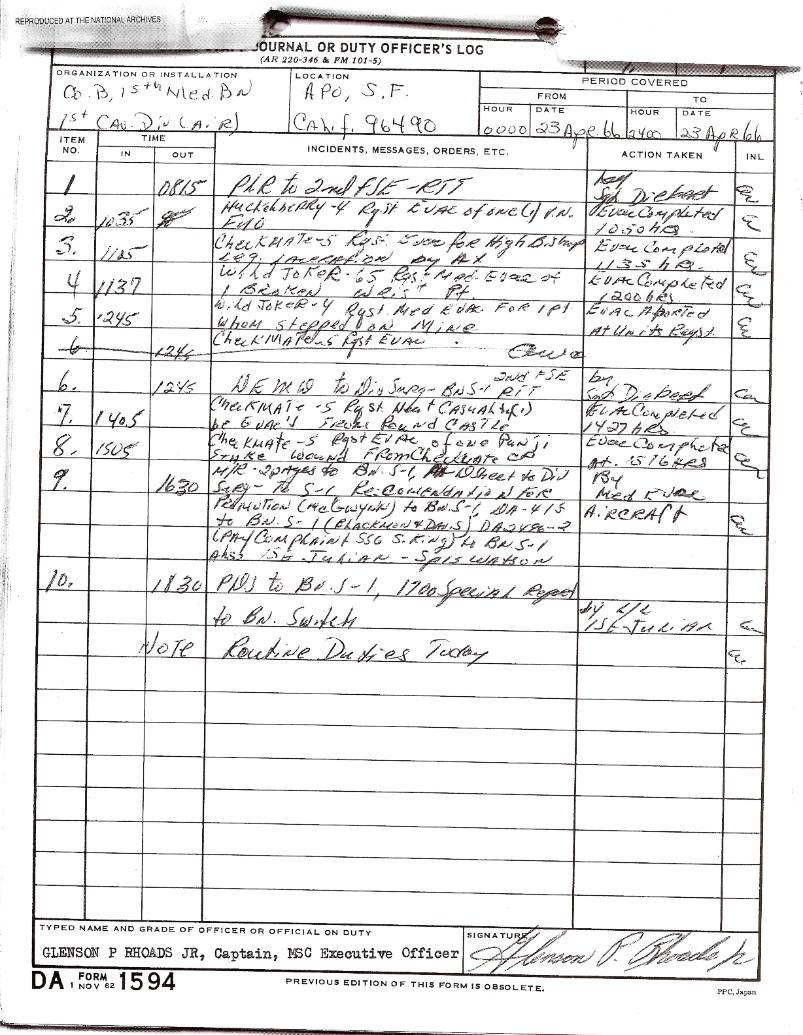 REPRODUCED AT THE NATIONAL ARCHIVES
JOURNAL OR DUTY OFFICER'S LOG
(AR 220-346 & FM 101-5)
ORGANIZATION OR INSTALLATION
LOCATION
PERIOD COVERED
Co. B, 15th Med. Bn
1st Cav. Div (Air)
APO, S.F.
Calif. 96490
FROM
TO
HOUR
DATE
HOUR
DATE
0000
23 Apr 66
2400
23 Apr 66
ITEM NO.
TIME
IN
OUT
INCIDENTS, MESSAGES, ORDERS, ETC.
ACTION TAKEN
INL
1 0815 to 2nd FSE - RTT by
Sgt Diebert
2. 1035 Huckleberry-4 Rqst Evac of one (1) V.N. Evac Completed
1050 hrs.
3. 1125 Checkmate-5 Rqst. Evac for High Evac Completed
Leg. Laceration by Ax 1135 hrs.
4 1137 Wild Joker-65 Rqst. Med. Evac of Evac Completed
1 Broken Wrist Pt 1200 hrs
5. 1245 Wild Joker-4 Rqst Med Evac For 1 pt Evac Aborted
Whom stepped on Mine At Units Rqst.
6 1245 Checkmate-5 Rqst Evac
2nd FSE
6. 1245 to Div Surg - Bn S-1 RTT by
Sgt Diebert
7. 1405 Checkmate-5 Rqst. Heat Casualty(1) Evac Completed
be Evac'd From Pound Castle 1427 hrs.
8. 1505 Checkmate-5 Rqst Evac of one Punji Evac Completed
Stroke Wound From Checkmate CP At. 1516 hrs
9. 1630 M/R-2 pages to Bn. S-1, D Sheet to Div By
Surg - to S-1 Recomendation For Med Evac
Promotion (McGwynn) to Bn. S-1, DA-415 Aircraft
to Bn. S-1 (Blackmon & Davis) DA 2496-2
(Pay Complaint SSG S. King) to Bn. S-1
1st Julian - Watson
10. 1830 to Bn. S-1, 1700 Special Report
to Bn. Switch by L/L
Julian
Note Routine Duties Today
TYPED NAME AND GRADE OF OFFICER OR OFFICIAL ON DUTY
SIGNATURE
GLENSON P RHOADS JR, Captain, MSC Executive Officer
Glenson P. Rhoads Jr
DA FORM 1 NOV 62 1594
PREVIOUS EDITION OF THIS FORM IS OBSOLETE.
PPC, Japan